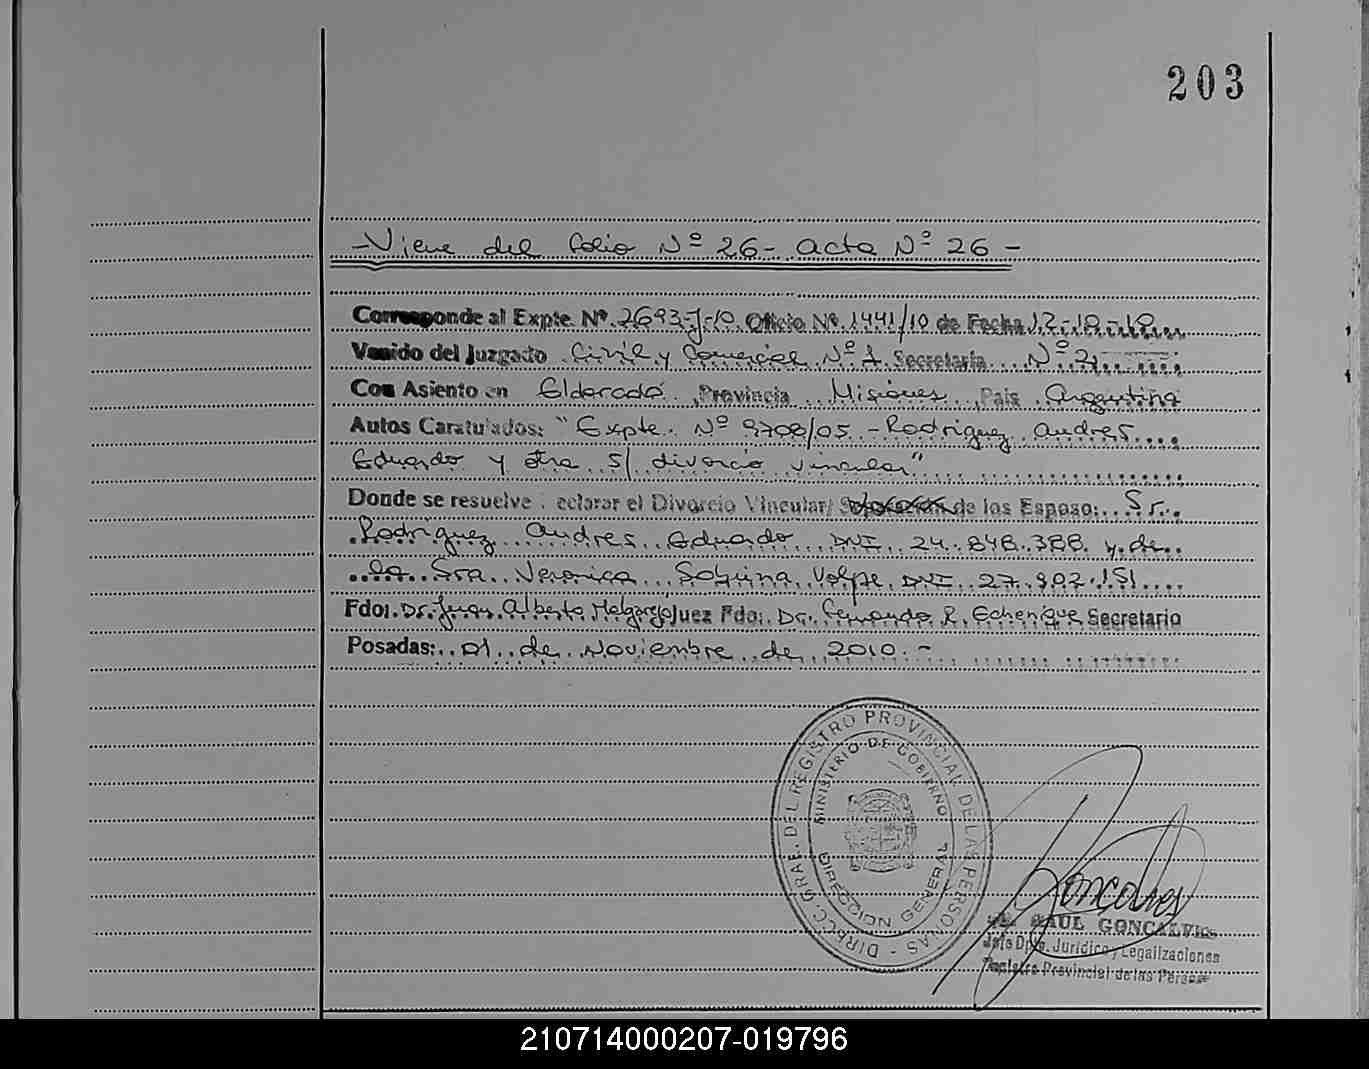 203
-Viene del folio Nº 26- acta Nº 26 -
Corresponde al Expte. Nº. 2693-J-10 Oficio Nº. 1441/10 de Fecha 12-10-10
Venido del Juzgado Civil y Comercial Nº 1 Secretaría Nº 2
Con Asiento en Eldorado, Provincia Misiones, País Argentina
Autos Caratulados: "Expte. Nº 9708/05 - Rodriguez Andres
Eduardo y otra s/ divorcio vincular"
Donde se resuelve eclarar el Divorcio Vincular/ de los Esposo: Sr.
Rodriguez Andres Eduardo DNI 24.848.388 y de
la Sra. Veronica Sabrina Volpe DNI 27.907.151
Fdo: Dr. Juan Alberto Melgarejo Juez Fdo: Dr. Fernando R. Echenique Secretario
Posadas: 01 de Noviembre de 2010.-
DIRECC. GRAL. DEL REGISTRO PROVINCIAL DE LAS PERSONAS -
MINISTERIO DE GOBIERNO
DIRECCION GENERAL
Goncalves
RAUL GONCALVES
Jefe Dpto. Jurídico y Legalizaciones
Registro Provincial de las Personas
210714000207-019796